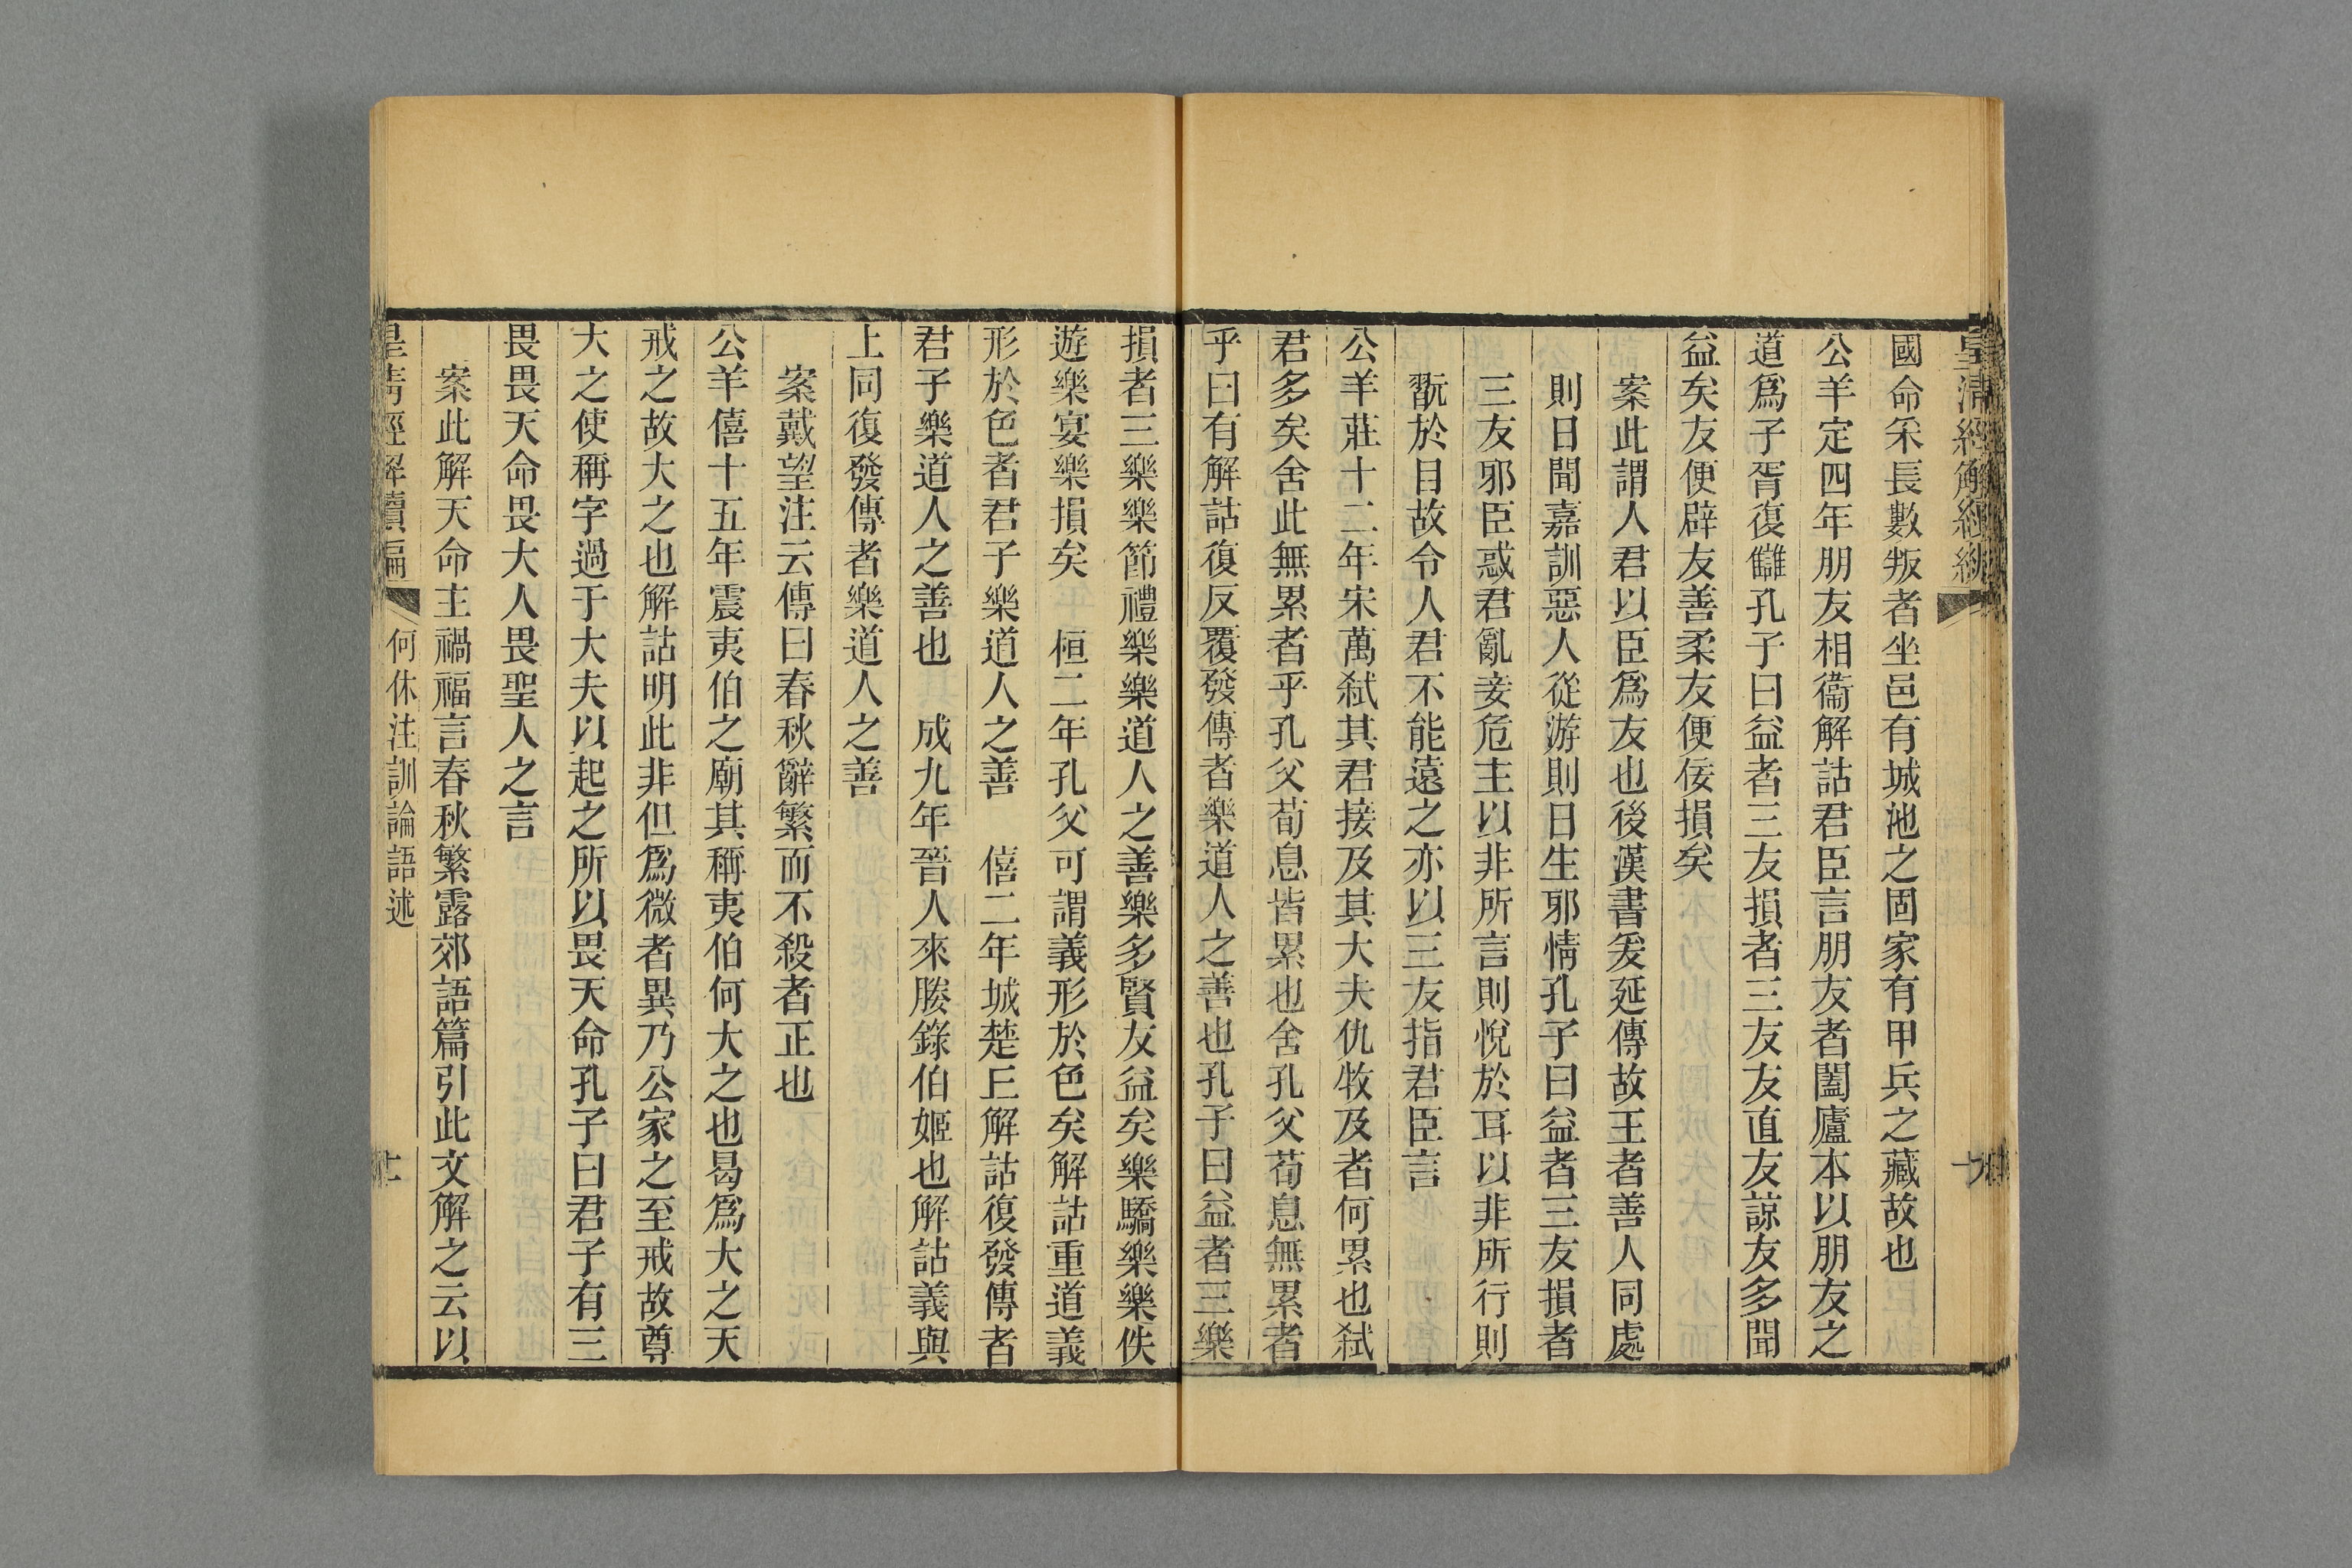 國命采長數叛者坐邑有城池之固家有甲兵之藏故也
公羊定四年朋友相衞解詁君臣言朋友者闔廬本以朋友之
道爲子胥復讎孔子曰益者三友損者三友友直友諒友多聞
益矣友便辟友善柔友便佞損矣
案此謂人君以臣爲友也後漢書爰延傳故王者善人同處
則日聞嘉訓惡人從游則日生邪情孔子曰益者三友損者
三友邪臣惑君亂妾危主以非所言則悅於耳以非所行則
翫於目故令人君不能遠之亦以三友指君臣言
公羊莊十二年宋萬弒其君接及其大夫仇牧及者何累也弒
君多矣舍此無累者乎孔父荀息皆累也舍孔父荀息無累者
乎曰有解詁復反覆發傳者樂道人之善也孔子曰益者三樂
損者三樂樂節禮樂樂道人之善樂多賢友益矣樂驕樂樂佚
遊樂宴樂損矣　桓二年孔父可謂義形於色矣解詁重道義
形於色者君子樂道人之善　僖二年城楚丘解詁復發傳者
君子樂道人之善也　成九年晉人來媵錄伯姬也解詁義與
上同復發傳者樂道人之善
案戴望注云傳曰春秋辭繁而不殺者正也
公羊僖十五年震夷伯之廟其稱夷伯何大之也曷爲大之天
戒之故大之也解詁明此非但爲微者異乃公家之至戒故尊
大之使稱字過于大夫以起之所以畏天命孔子曰君子有三
畏畏天命畏大人畏聖人之言
案此解天命主禍福言春秋繁露郊語篇引此文解之云以
皇清經解續編　何休注訓論語述